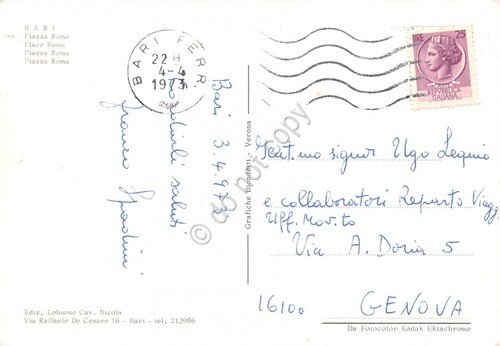 BARI
Piazza Roma
Place Roma
Piazza Roma
Piazza Roma
BARI FERR.
22 H
4-4
1973
25
REPUBBLICA
ITALIANA
Bari 3.4.973
saluti
Franco Spadini
do not copy
Grafiche Biondetti - Verona
Gent.mo signor Ugo Lequio
e collaboratori Reparto Viagg.
Uff. Mov.to
Via A. Doria 5
16100 GENOVA
Ediz. Lobuono Cav. Nicola
Via Raffaele De Cesare 16 - Bari - tel. 213986
Da Fotocolor Kodak Ektachrome